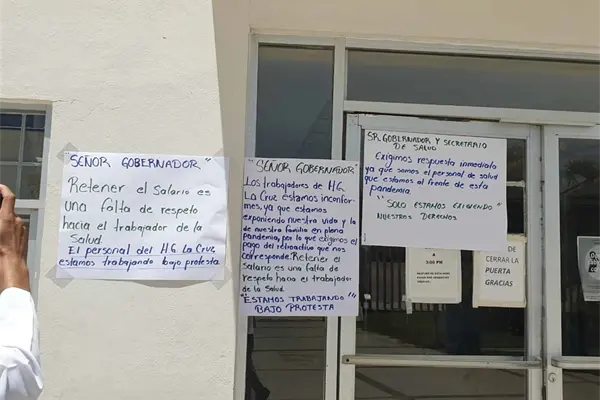 "SEÑOR GOBERNADOR"
Retener el Salario es
una falta de respeto
hacia el trabajador de la
Salud.
El personal del H.G. La Cruz
estamos trabajando bajo protesta
"SEÑOR GOBERNADOR
Los trabajadores de H.G.
La Cruz estamos inconfor-
mes, ya que estamos
exponiendo nuestra vida y la
de nuestra familia en plena
pandemia, por lo que exigimos el
pago del retroactivo que nos
corresponde. Retener el
salario es una falta de
respeto hacia el trabajador
de la Salud.
"ESTAMOS TRABAJANDO !!!
BAJO PROTESTA
SR. GOBERNADOR Y SECRETARIO
DE SALUD
Exigimos respuesta inmediata
ya que somos el personal de salud
que estamos al frente de esta
pandemia
"SOLO ESTAMOS EXIGIENDO
NUESTROS DERECHOS
3:00 PM
DE
CERRAR LA
PUERTA
GRACIAS